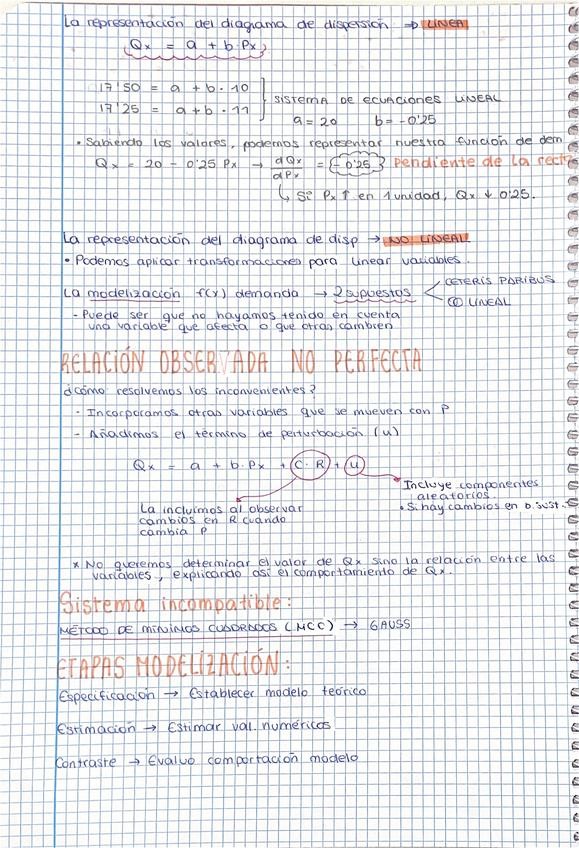 La representación del diagrama de dispersión → LINEAL
Qx = a + b·Px
17'50 = a + b·10
17'25 = a + b·11
SISTEMA DE ECUACIONES LINEAL
a = 20 b = -0'25
• Sabiendo los valores, podemos representar nuestra función de dem
Qx = 20 - 0'25 Px → dQx/dPx = -0'25 Pendiente de la recta
↳ Si Px ↑ en 1 unidad, Qx ↓ 0'25.
La representación del diagrama de disp → NO LINEAL
• Podemos aplicar transformaciones para linear variables.
La modelización f(x) demanda → 2 supuestos
CETERIS PARIBUS
LINEAL
- Puede ser que no hayamos tenido en cuenta
una variable que afecta o que otras cambien
RELACIÓN OBSERVADA NO PERFECTA
¿Cómo resolvemos los inconvenientes?
- Incorporamos otras variables que se mueven con P
- Añadimos el término de perturbación (u)
Qx = a + b·Px + C·R + u
Incluye componentes
aleatorios.
• Si hay cambios en b.sust.
La incluimos al observar
cambios en R cuando
cambia P
* No queremos determinar el valor de Qx sino la relación entre las
variables, explicando así el comportamiento de Qx.
Sistema incompatible:
MÉTODO DE MÍNIMOS CUADRADOS (MCC) → GAUSS
ETAPAS MODELIZACIÓN:
Especificación → Establecer modelo teórico
Estimación → Estimar val. numéricos
Contraste → Evaluo comportación modelo